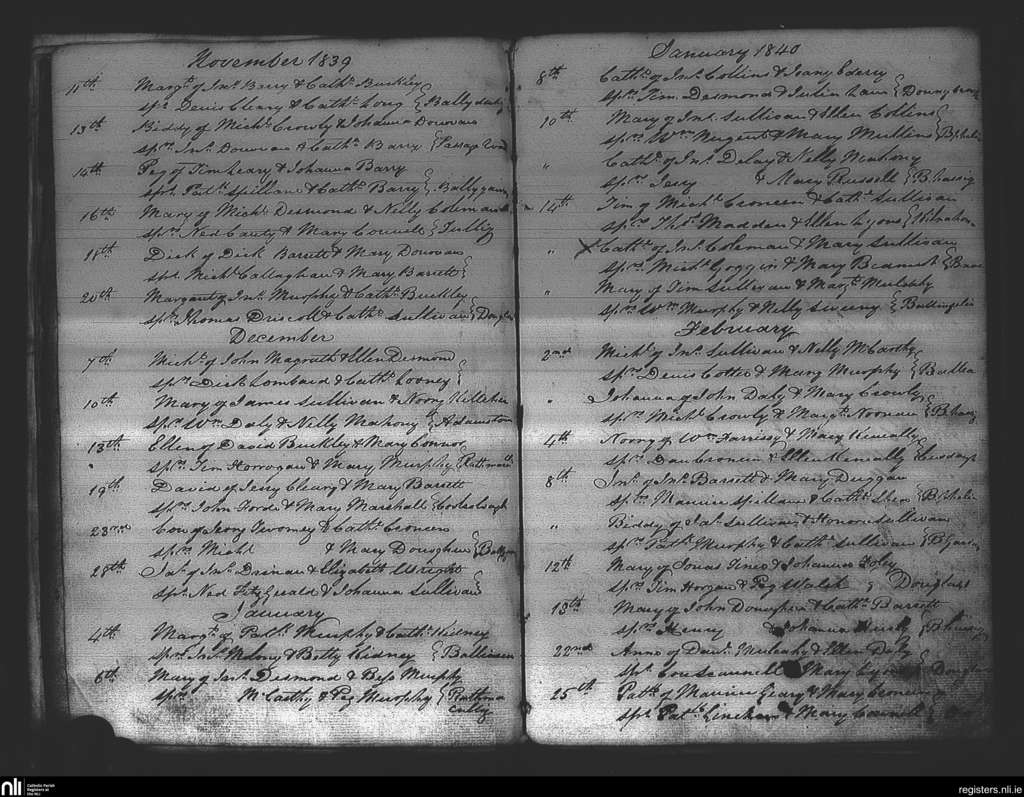 November 1839
11th Margt. of Jno. Barry & Cath. Buckley
Sprs. Denis Cleary & Cath. Long
13th Biddy of Michl. Crowly & Johanna Donovan
Sprs. Jno. Donovan & Cath. Barry Passage
14th Peg of Tim Leary & Johanna Barry
Sprs. Patk. Spillane & Cath. Barry
16th Mary of Michl. Desmond & Nelly Coleman
Sprs. Ned Canty & Mary Connell
18th Dick of Dick Barrett & Mary Donovan
Sprs. Michl. Callaghan & Mary Barrett
20th Margaret of Jno. Murphy & Cath. Buckley
Sprs. Thomas Driscoll & Cath. Sullivan Douglas
December
7th Michl. of John Magrath & Ellen Desmond
Sprs. Dick Lombard & Cath. Looney
10th Mary of James Sullivan & Noory Kelleher
Sprs. Wm. Daly & Nelly Mahony Adamstown
13th Ellen of David Buckley & Mary Connor
" Sprs. Tim Horrogan & Mary Murphy
19th David of Jerry Cleary & Mary Barrett
Sprs. John Forde & Mary Marshall
23rd Con of Jerry Twomey & Cath. Croneen
Sprs. Michl. & Mary Donoghue
28th Jas. of Jno. Drinan & Elizabeth Wright
Sprs. Ned FitzGerald & Johanna Sullivan
January
4th Margt. of Patk. Murphy & Cath. Kidney
Sprs. Jno. Molony & Betty Kidney
6th Mary of Jno. Desmond & Bess Murphy
Sprs. McCarthy & Peg Murphy
January 1840
8th Cath. of Jno. Collins & Joany
Sprs. Tim. Desmond & Julia
10th Mary of Jno. Sullivan & Ellen Collins
Sprs. Wm. Nugent & Mary Mullens
" Cath. of Jno. Delay & Nelly Mahony
Sprs. Jerry & Mary Russell
14th Tim of Michl. Croneen & Cath. Sullivan
Sprs. Thos. Madden & Ellen Lyons
" Cath. of Jno. Coleman & Mary Sullivan
Sprs. Michl. Goggin & Mary Beamish
" Mary of Tim Sullivan & Margt. Mulcahy
Sprs. Wm. Murphy & Nelly Sweeny
February
2nd Michl. of Jno. Sullivan & Nelly McCarthy
Sprs. Denis Cotter & Mary Murphy
" Johanna of John Daly & Mary Crowly
Sprs. Michl. Crowly & Margt. Noonan
4th Noory of Wm. Farrissy & Mary Kineally
Sprs. Dan Croneen & Ellen Kineally
8th Jno. of Jno. Barrett & Mary Duggan
Sprs. Maurice Spillane & Cath. Shea
" Biddy of Jas. Sullivan & Honora Sullivan
Sprs. Patk. Murphy & Cath. Sullivan
12th Mary of Jonas & Johanna Foley
Sprs. Tim Horgan & Peg Walsh Douglas
13th Mary of John Donoghue & Cath. Barrett
Sprs. Henry & Johanna
22nd Anne of Danl. Mulcahy & Ellen Daly
Sprs. Con Scannell Mary
25th Patk. of Maurice Geary & Mary Croneen
Sprs. Patk. Linehan & Mary Connell
nli Catholic Parish Registers at the NLI
registers.nli.ie